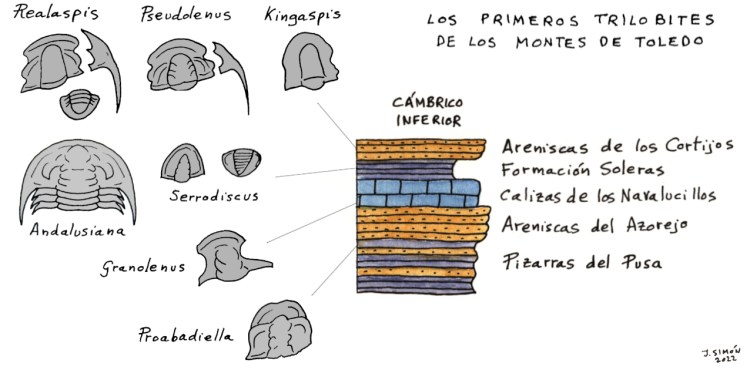 Realaspis
Pseudolenus
Kingaspis
LOS PRIMEROS TRILOBITES
DE LOS MONTES DE TOLEDO
CÁMBRICO
INFERIOR
Areniscas de los Cortijos
Formación Soleras
Calizas de los Navalucillos
Areniscas del Azorejo
Pizarras del Pusa
Serrodiscus
Andalusiana
Granolenus
Proabadiella
J. SIMÓN
2022